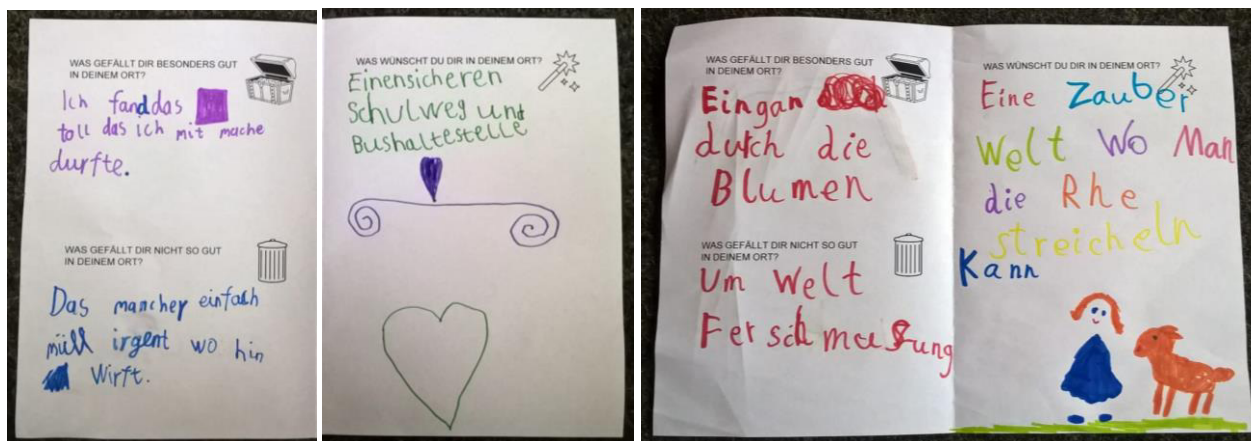 WAS GEFÄLLT DIR BESONDERS GUT
IN DEINEM ORT?
Ich fand das
toll das ich mit mache
durfte.
WAS GEFÄLLT DIR NICHT SO GUT
IN DEINEM ORT?
Das mancher einfach
müll irgent wo hin
Wirft.
WAS WÜNSCHT DU DIR IN DEINEM ORT?
Einensicheren
Schulweg und
Bushaltestelle
WAS GEFÄLLT DIR BESONDERS GUT
IN DEINEM ORT?
Eingan
durch die
Blumen
WAS GEFÄLLT DIR NICHT SO GUT
IN DEINEM ORT?
Um Welt
Ferschmusung
WAS WÜNSCHT DU DIR IN DEINEM ORT?
Eine Zauber
Welt Wo Man
die Rhe
streicheln
Kann